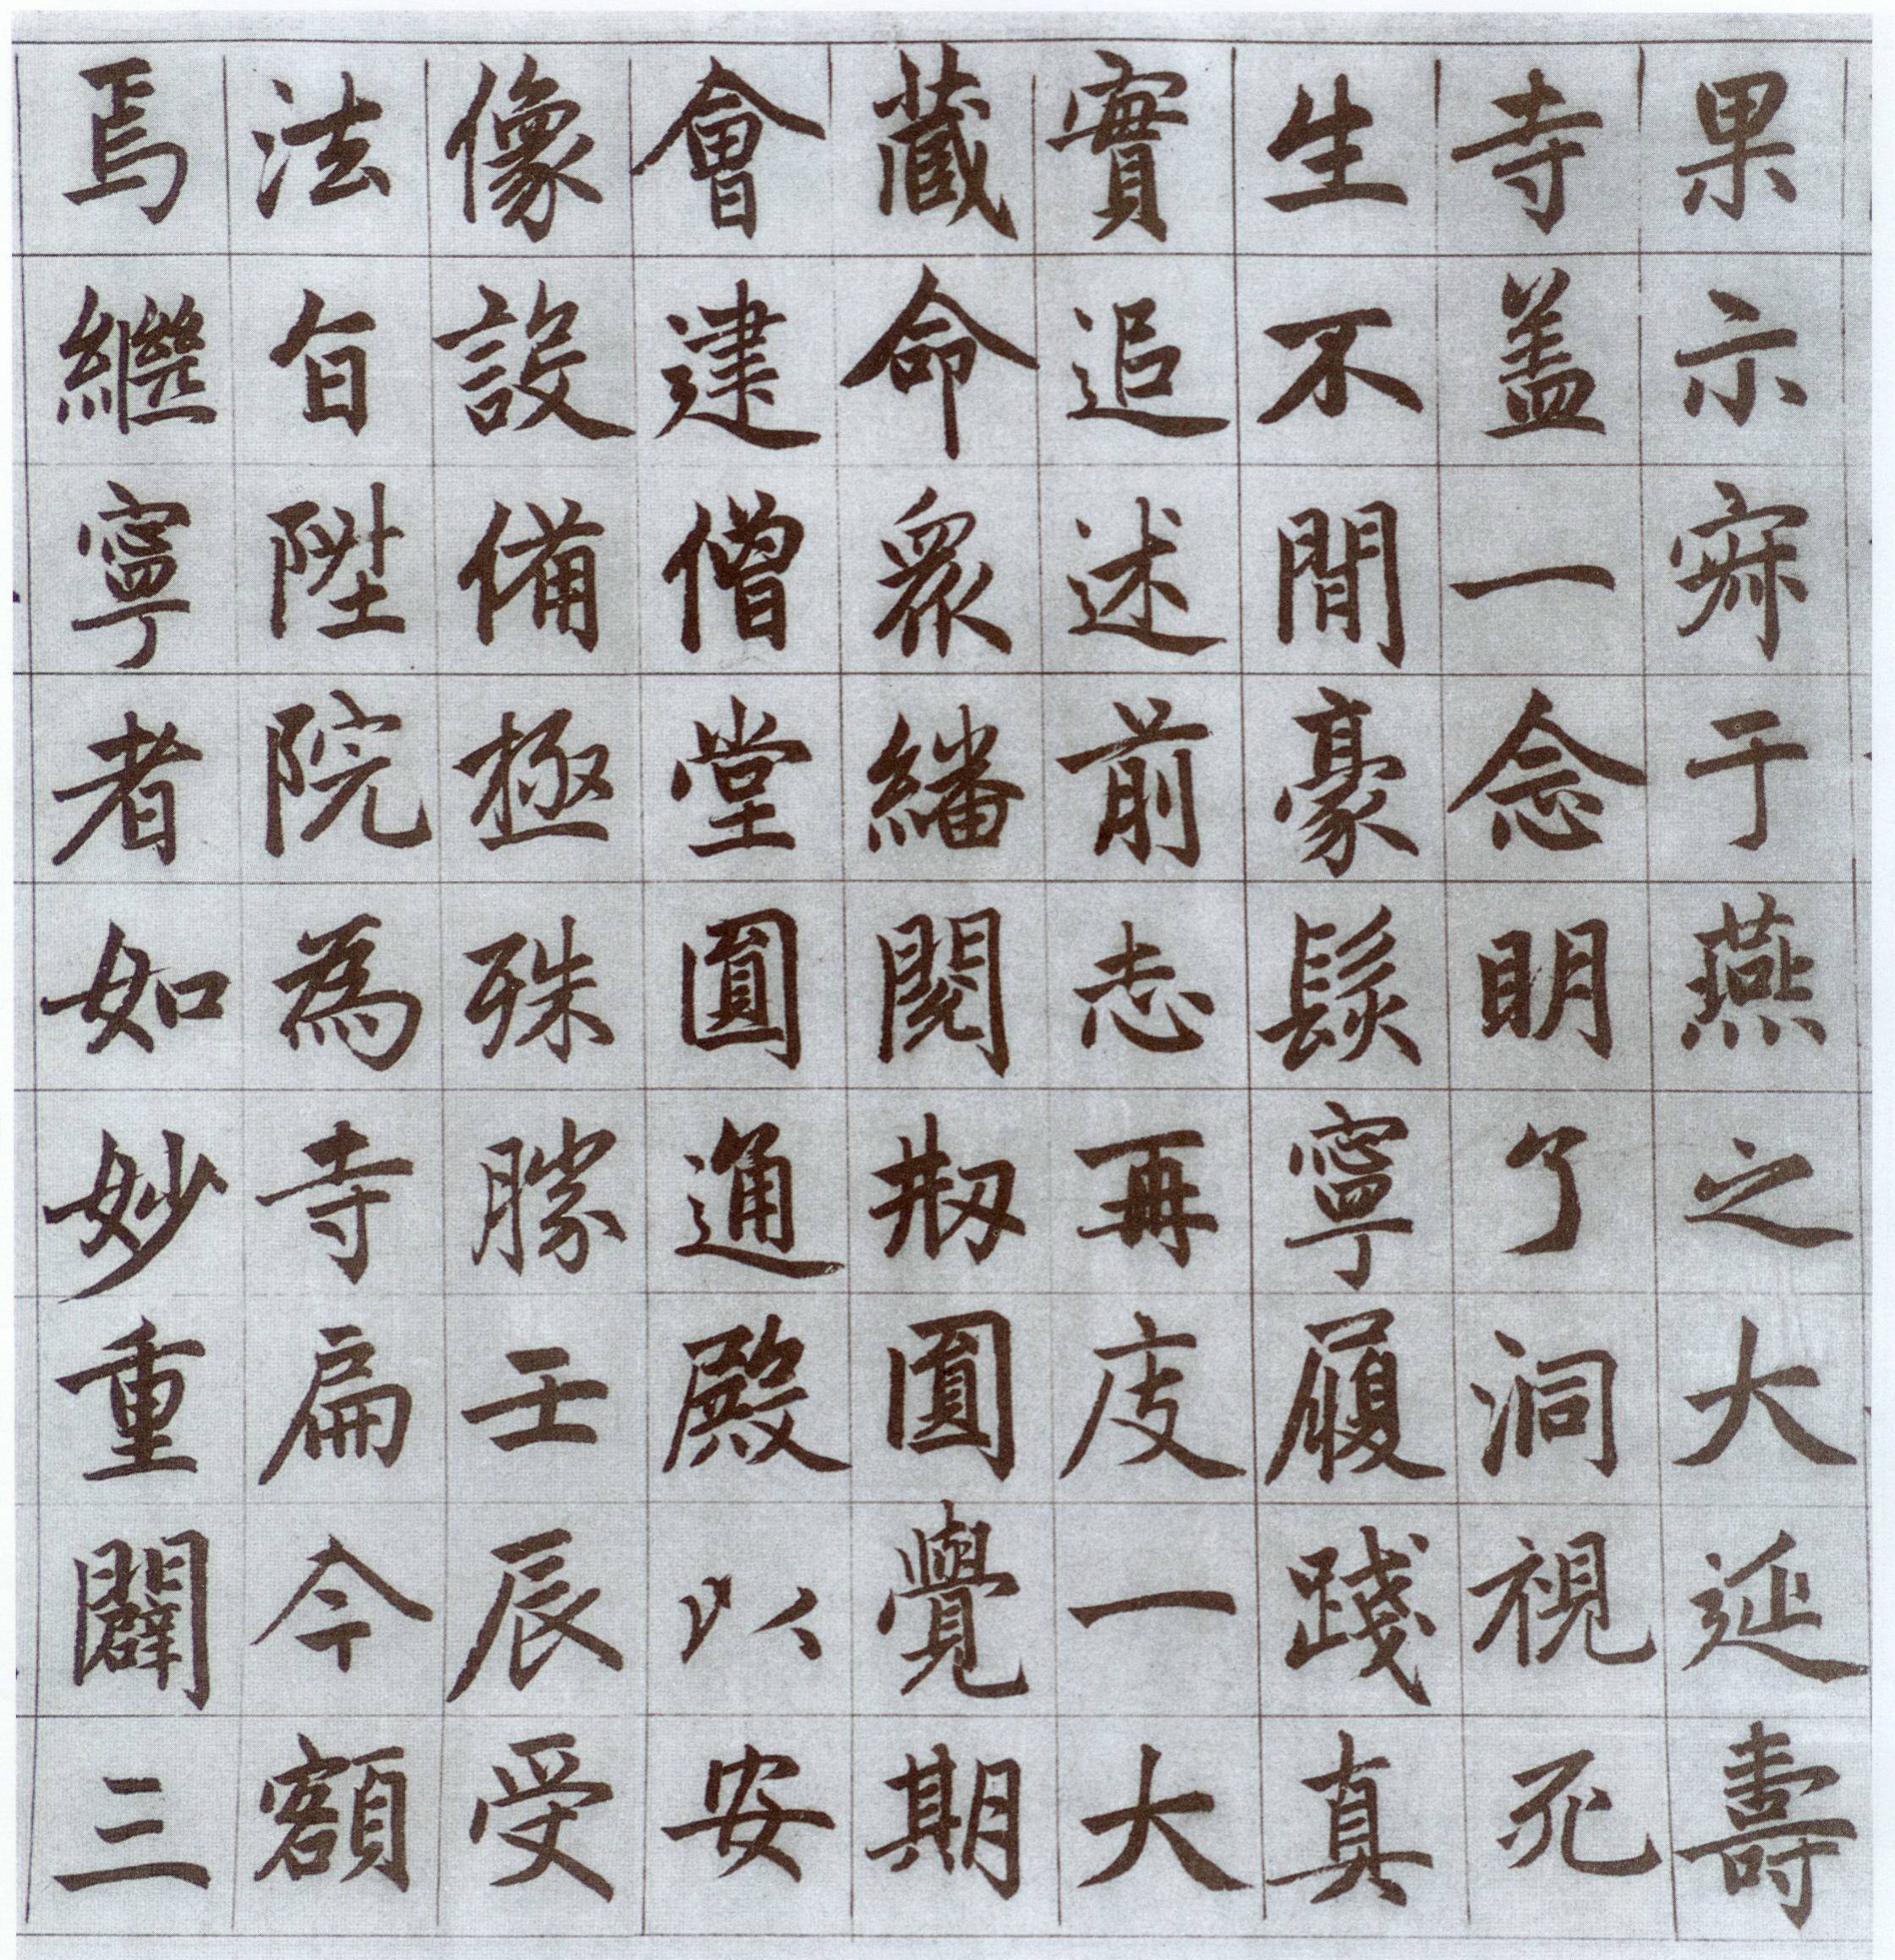 果示㝛于燕之大延壽
寺盖一念明了洞視死
生不間豪髮寧履踐真
實追述前志再度一大
藏命眾繙閱刱圓覺期
會建僧堂圓通殿以安
像設備極殊勝壬辰受
法旨陞院為寺扁今額
焉繼寧者如妙重闢三